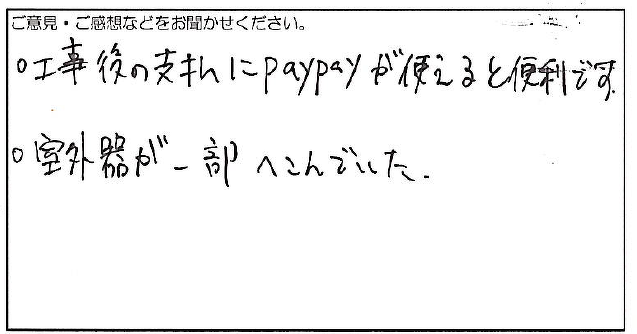 ご意見・ご感想などをお聞かせください。
○工事後の支払にpaypayが使えると便利です.
○室外器が一部へこんでいた.